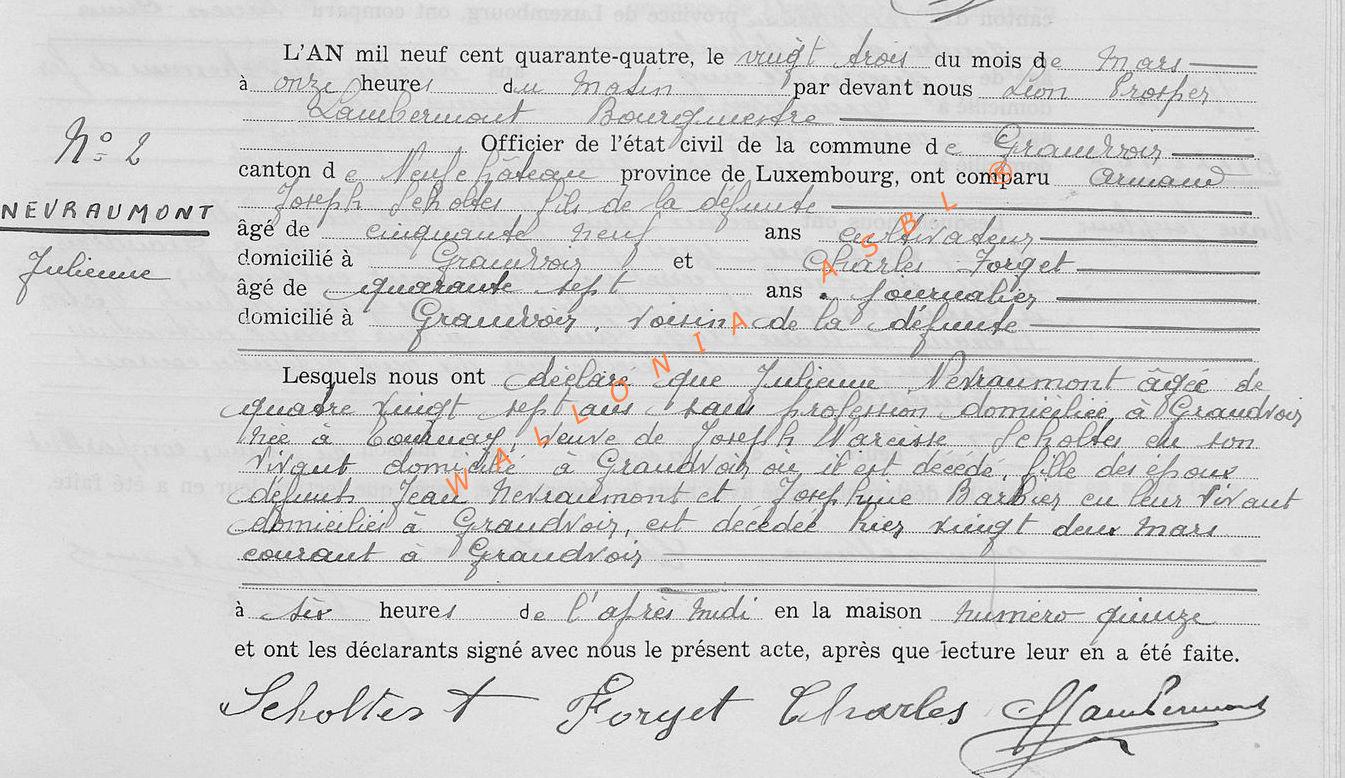 L'AN mil neuf cent quarante-quatre, le vingt trois du mois de Mars
à onze heures du Matin par devant nous Léon Prosper
Lambermont Bourgmestre
N° 2
Officier de l'état civil de la commune de Grandvoir
canton de Neufchâteau province de Luxembourg, ont comparu Armand
NEVRAUMONT
Joseph Scholtes fils de la défunte
âgé de cinquante neuf ans cultivateur
Julienne
domicilié à Grandvoir et Charles Forget
âgé de quarante sept ans journalier
domicilié à Grandvoir, voisin de la défunte
Lesquels nous ont déclaré que Julienne Nevraumont âgée de
quatre vingt sept ans sans profession domiciliée à Grandvoir
née à Tournay Veuve de Joseph Narcisse Scholtes en son
vivant domicilié à Grandvoir où il est décédé fille des époux
défunts Jean Nevraumont et Joséphine Barbier en leur vivant
domiciliés à Grandvoir, est décédée hier vingt deux Mars
courant à Grandvoir
à six heures de l'après midi en la maison numéro quinze
et ont les déclarants signé avec nous le présent acte, après que lecture leur en a été faite.
Scholtes Forget Charles Lambermont
WALLONIA ASBL ®